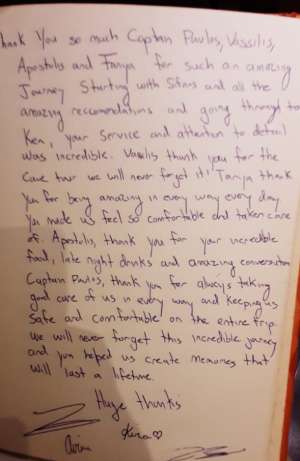 Thank You so much Captain Pavlos, Vassilis,
Apostolis and Tanya for such an amazing
Journey Starting with Stavros and all the
amazing reccomendations and going through to
Ken, your service and attention to detail
was incredible. Vassilis thank you for the
Cave tour we will never forget it! Tanya thank
You for being amazing in every way every day
You made us feel so comfortable and taken care
of. Apostolis, thank you for your incredible
food, late night drinks and amazing conversation
Captain Pavlos, thank you for always taking
good care of us in every way and keeping us
Safe and comfortable on the entire trip.
We will never forget this incredible journey
and you helped us create memories that
will last a lifetime.
Huge thanks